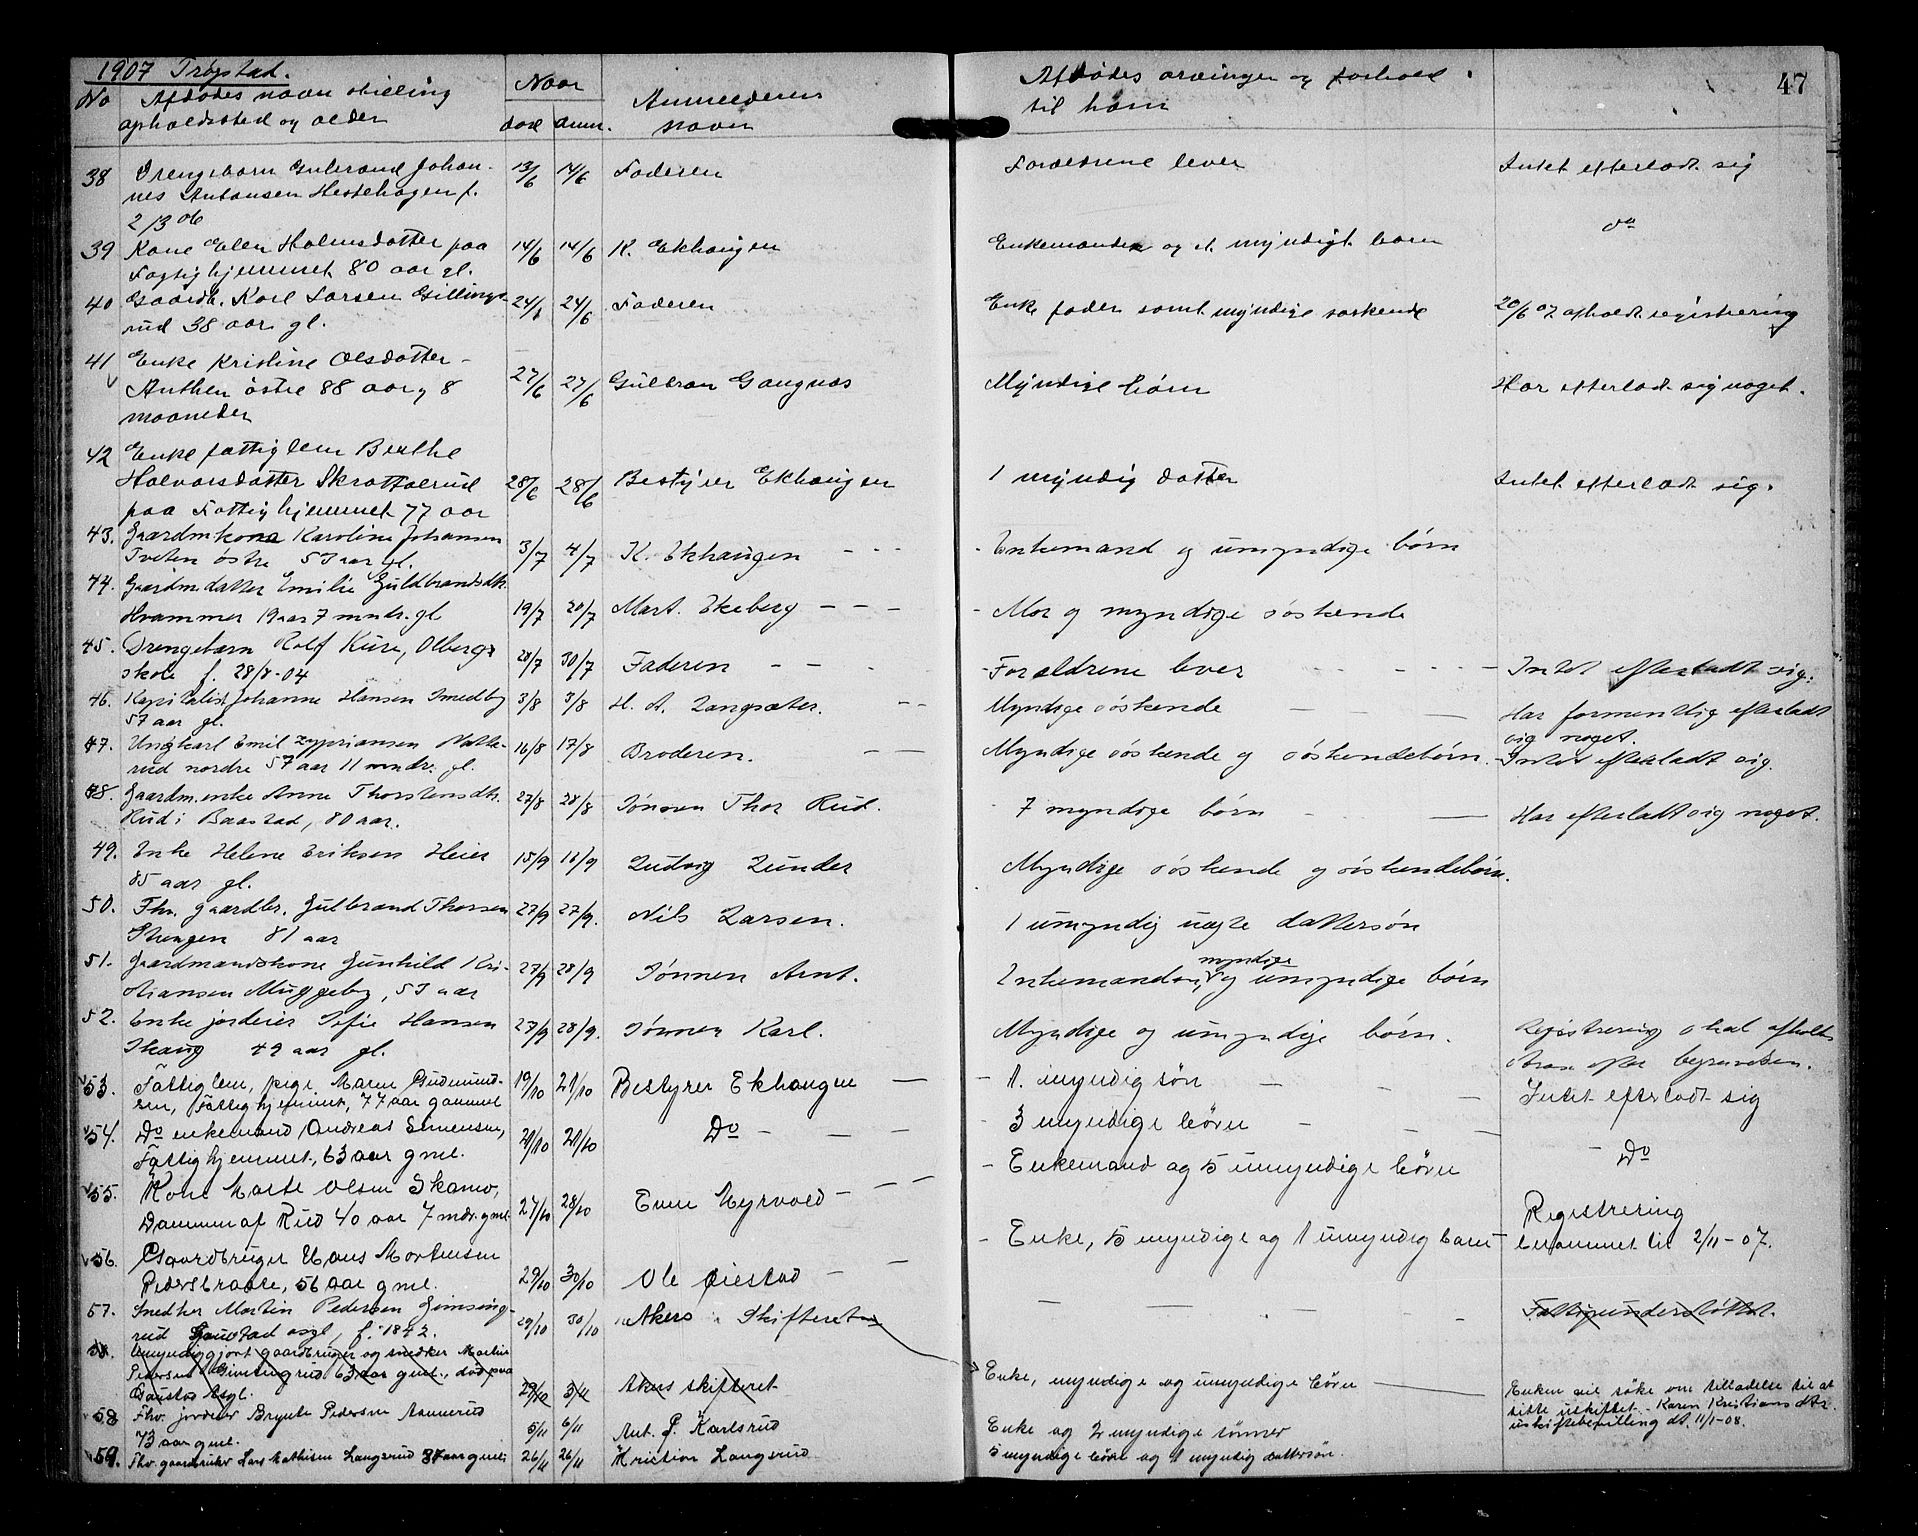 1907 Trøgstad.
47
No Afdødes navn stilling opholdssted og alder
Naar død anm.
Anmelderens navn
Afdødes arvinger og forhold til ham
38 Drengebarn Gulbrand Johannes Antonsen Hestehagen f. 2/3 06 13/6 14/6 Faderen Forældrene lever Intet efterladt sig
39 Kone Elen Holmsdatter paa Fattighjemmet 80 aar gl. 14/6 14/6 K. Ekhaugen Enkemanden og et myndigt barn do
40 Gaardb. Karl Larsen Gillingsrud 38 aar gl. 24/6 24/6 Faderen Enke fader samt myndige søskende 20/6 07 afholdt registrering
41 Enke Kristine Olsdatter - Anthen østre 88 aar, 8 maaneder 27/6 27/6 Gulbran Gangnæs Myndige børn Har efterladt sig noget.
42 Enke fattiglem Berthe Halvorsdatter Skrattalrud paa Fattighjemmet 77 aar 28/6 28/6 Bestyrer Ekhaugen 1 myndig datter Intet efterladt sig.
43. Gaardmkona Karoline Johansen Tveten østre 53 aar gl. 3/7 4/7 K. Ekhaugen - - - - Enkemand og umyndige børn
44. Gaardm.datter Emilie Guldbrandsdtr. Hvammer 19 aar 7 mndr. gl 19/7 20/7 Mart. Ekeberg - - - - Mor og myndige søskende
45. Drengebarn Rolf Kure, Olbergs skole f. 28/8-04 28/7 30/7 Faderen - - - - Forældrene lever - - - Intet efterladt sig.
46. Kapitalist Johanne Hansen Smedby 57 aar gl. 3/8 3/8 H. A. Langsæter. - - Myndige søskende - - - Har formentlig efterladt sig noget.
47. Ungkarl Emil Zypriansen Natterud nordre 57 aar 11 mndr. gl. 16/8 17/8 Broderen. - - Myndige søskende og søskendebørn. Intet efterladt sig.
48. Gaardm.enke Anne Thorstensdtr. Rud i Baastad, 80 aar. 27/8 28/8 Sønnen Thor Rud. - 7 myndige børn - - Har efterladt sig noget.
49. Enke Helene Eriksen Heier 85 aar gl. 15/9 18/9 Ludvig Lunder Myndige søskende og søskendebørn.
50. Fhv. gaardbr. Gulbrand Thorsen Stengen 81 aar 27/9 27/9. Nils Larsen. 1 umyndig uægte dattersøn
51. Gaardmandskone Gunhild Kristiansen Muggeby, 53 aar 27/9 28/9 Sønnen Arnt. Enkemanden, myndige og umyndige børn
52. Enke jordeier Sofie Hansen Skaug 49 aar gl. 27/9 28/9. Sønnen Karl. Myndige og umyndige børn. Registrering skal afholdes strax efter begravelsen.
53. Fattiglem, pige Maren Gudmundsen, Fattighjemmet, 77 aar gammel 19/10 21/10 Bestyrer Ekhaugen - - 1. myndig søn - - Intet efterladt sig
54. Do enkemand Andreas Simensen, Fattighjemmet, 63 aar gml. 21/10 21/10 Do - - - - 3 myndige børn - - - - Do
55. Kone Marte Olsen Skamo, Dammen af Rud 40 aar 7 mdr. gml. 27/10 28/10 Even Myrvold - - - - Enkemand og 5 umyndige børn
56. Gaardbruger Hans Mortensen Pederstraate, 56 aar gml. 29/10 30/10 Ole Øiestad - - - Enke, 5 myndige og 1 umyndig barn - Registrering berammet til 2/11-07.
57. Snedker Martin Pedersen Gimsingrud Gaustad asyl, f. 1842. 29/10 30/10 Akers Skifteret - - - - Fattigunderstøttet.
58. Umyndiggjort gaardbruger og snedker Martin Pedersen Gimsingrud 63 aar gml., død paa Gaustad Asyl. 29/10 3/11 Akers skifteret Enke, myndige og umyndige børn - Enken vil søke om tilladelse til at sitte i uskiftet. - Karen Kristiansdtr. uskiftebevilling dt. 11/1-08.
58 Fhv. jordeier Brynte Pedersen Aanerud 73 aar gml. 5/11 6/11 Ant. P. Karlsrud Enke og 2 myndige sønner
59. Fhv. gaardbruker Lars Mathisen Langsrud 87 aar gml. 26/11 26/11 Kristian Langsrud 5 myndige børn og 1 myndig dattersøn.